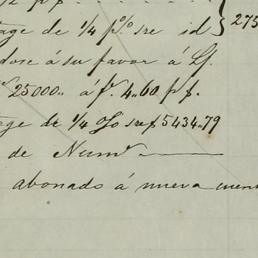 age de 1/4 p% sre id } 275
dose á su favor á Lf.
25000.. á fr. 4.60 p f.
age de 1/4 % sre f 5434.79
de Numº
abonado á nueva cuen